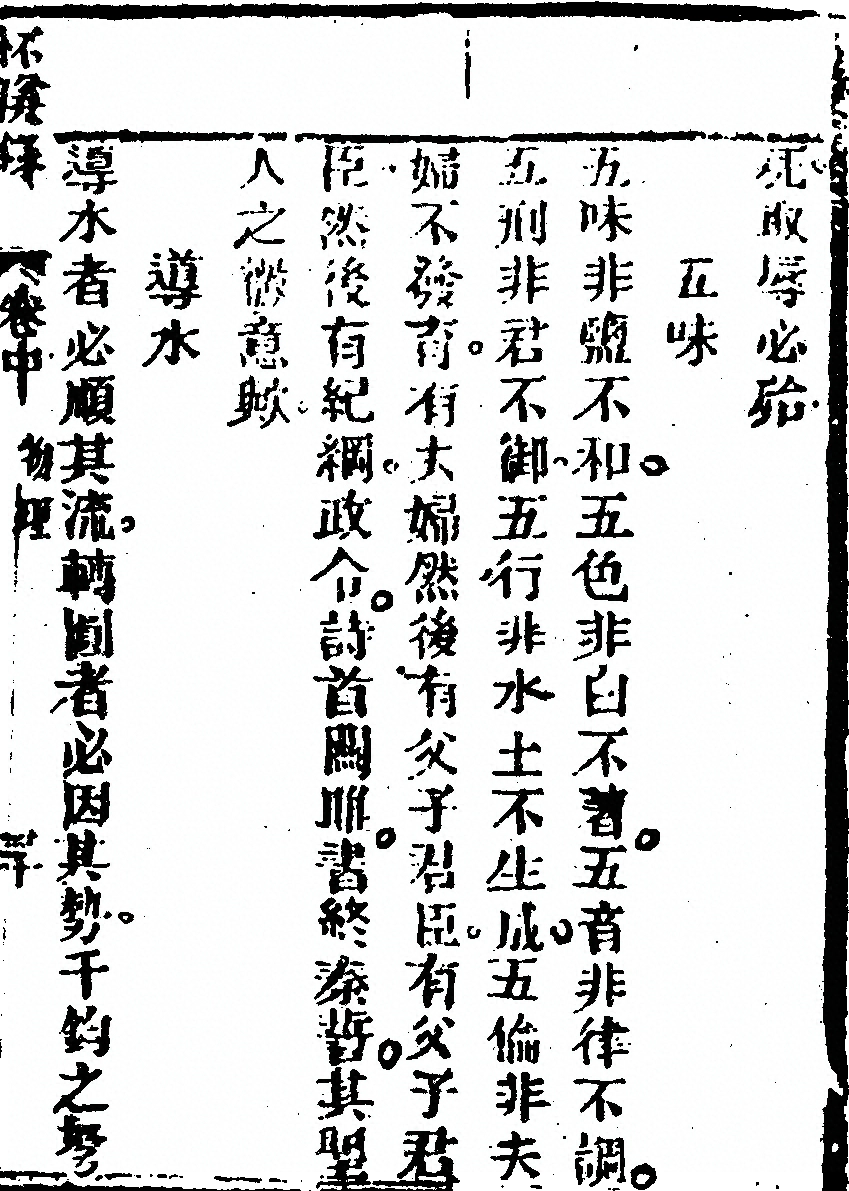 死敢辱必殆
五味
五味非鹽不和五色非白不著五音非律不調
五刑非君不御五行非水土不生成五倫非夫
婦不發育有夫婦然後有父子君臣有父子君
臣然後有紀綱政令詩首關雎書終秦誓其聖
人之微意歟
導水
導水者必順其流轉圜者必因其勢千鈞之弩
卷中
物理